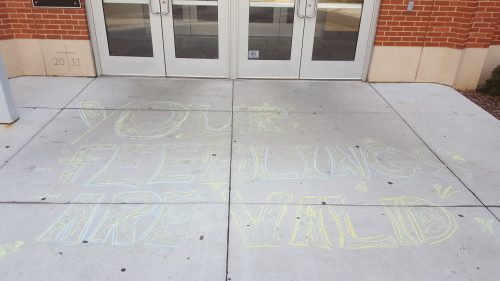 20 11
YOUR
FEELINGS
ARE VALID